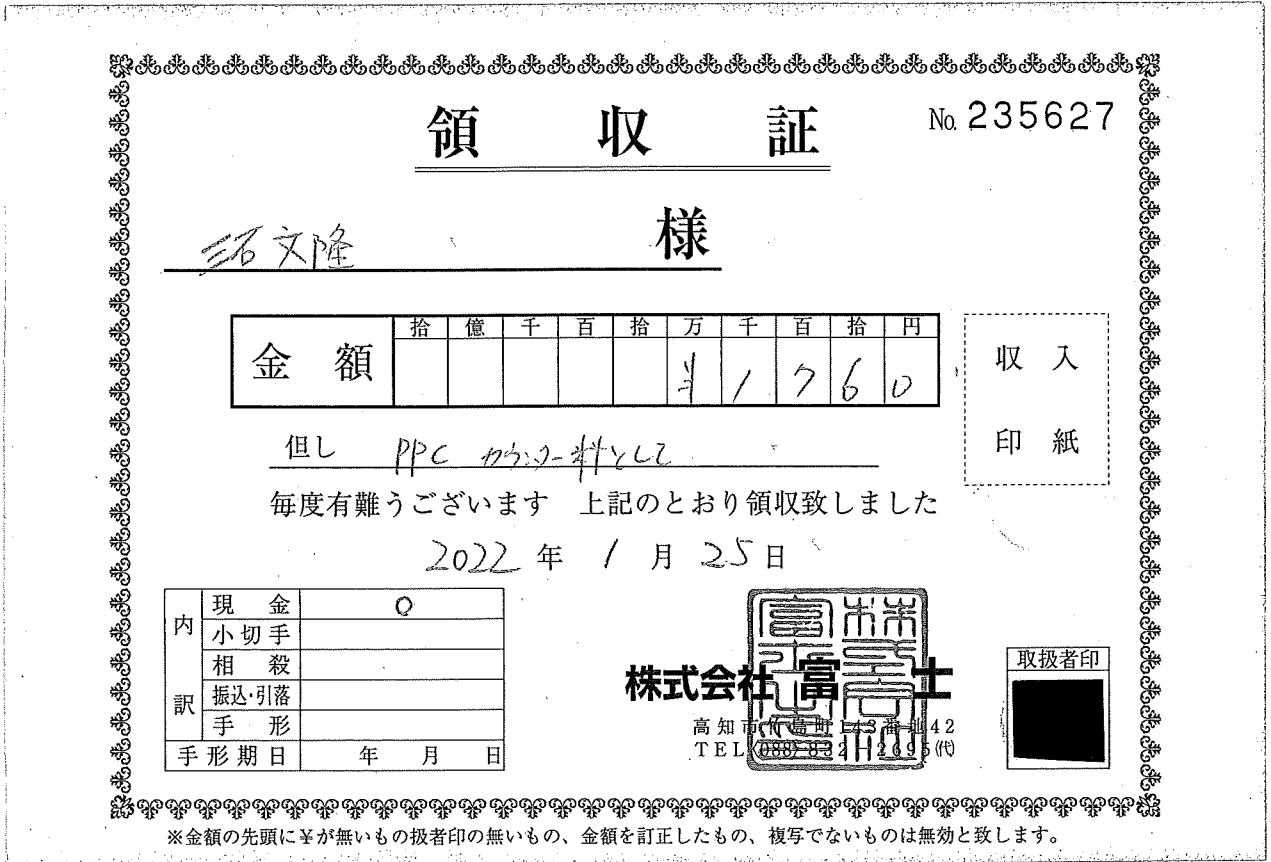 領収証
No. 235627
三石文隆 様
金額
拾 億 千 百 拾 万 千 百 拾 円
¥ 1 7 6 0
収入
印紙
但し PPC カウンター料として
毎度有難うございます 上記のとおり領収致しました
2022年 1月 25日
内訳
現金 ○
小切手
相殺
振込・引落
手形
手形期日 年 月 日
株式会社 富士
高知市竹島町143番地42
TEL(088)832-2695(代)
取扱者印
※金額の先頭に¥が無いもの扱者印の無いもの、金額を訂正したもの、複写でないものは無効と致します。